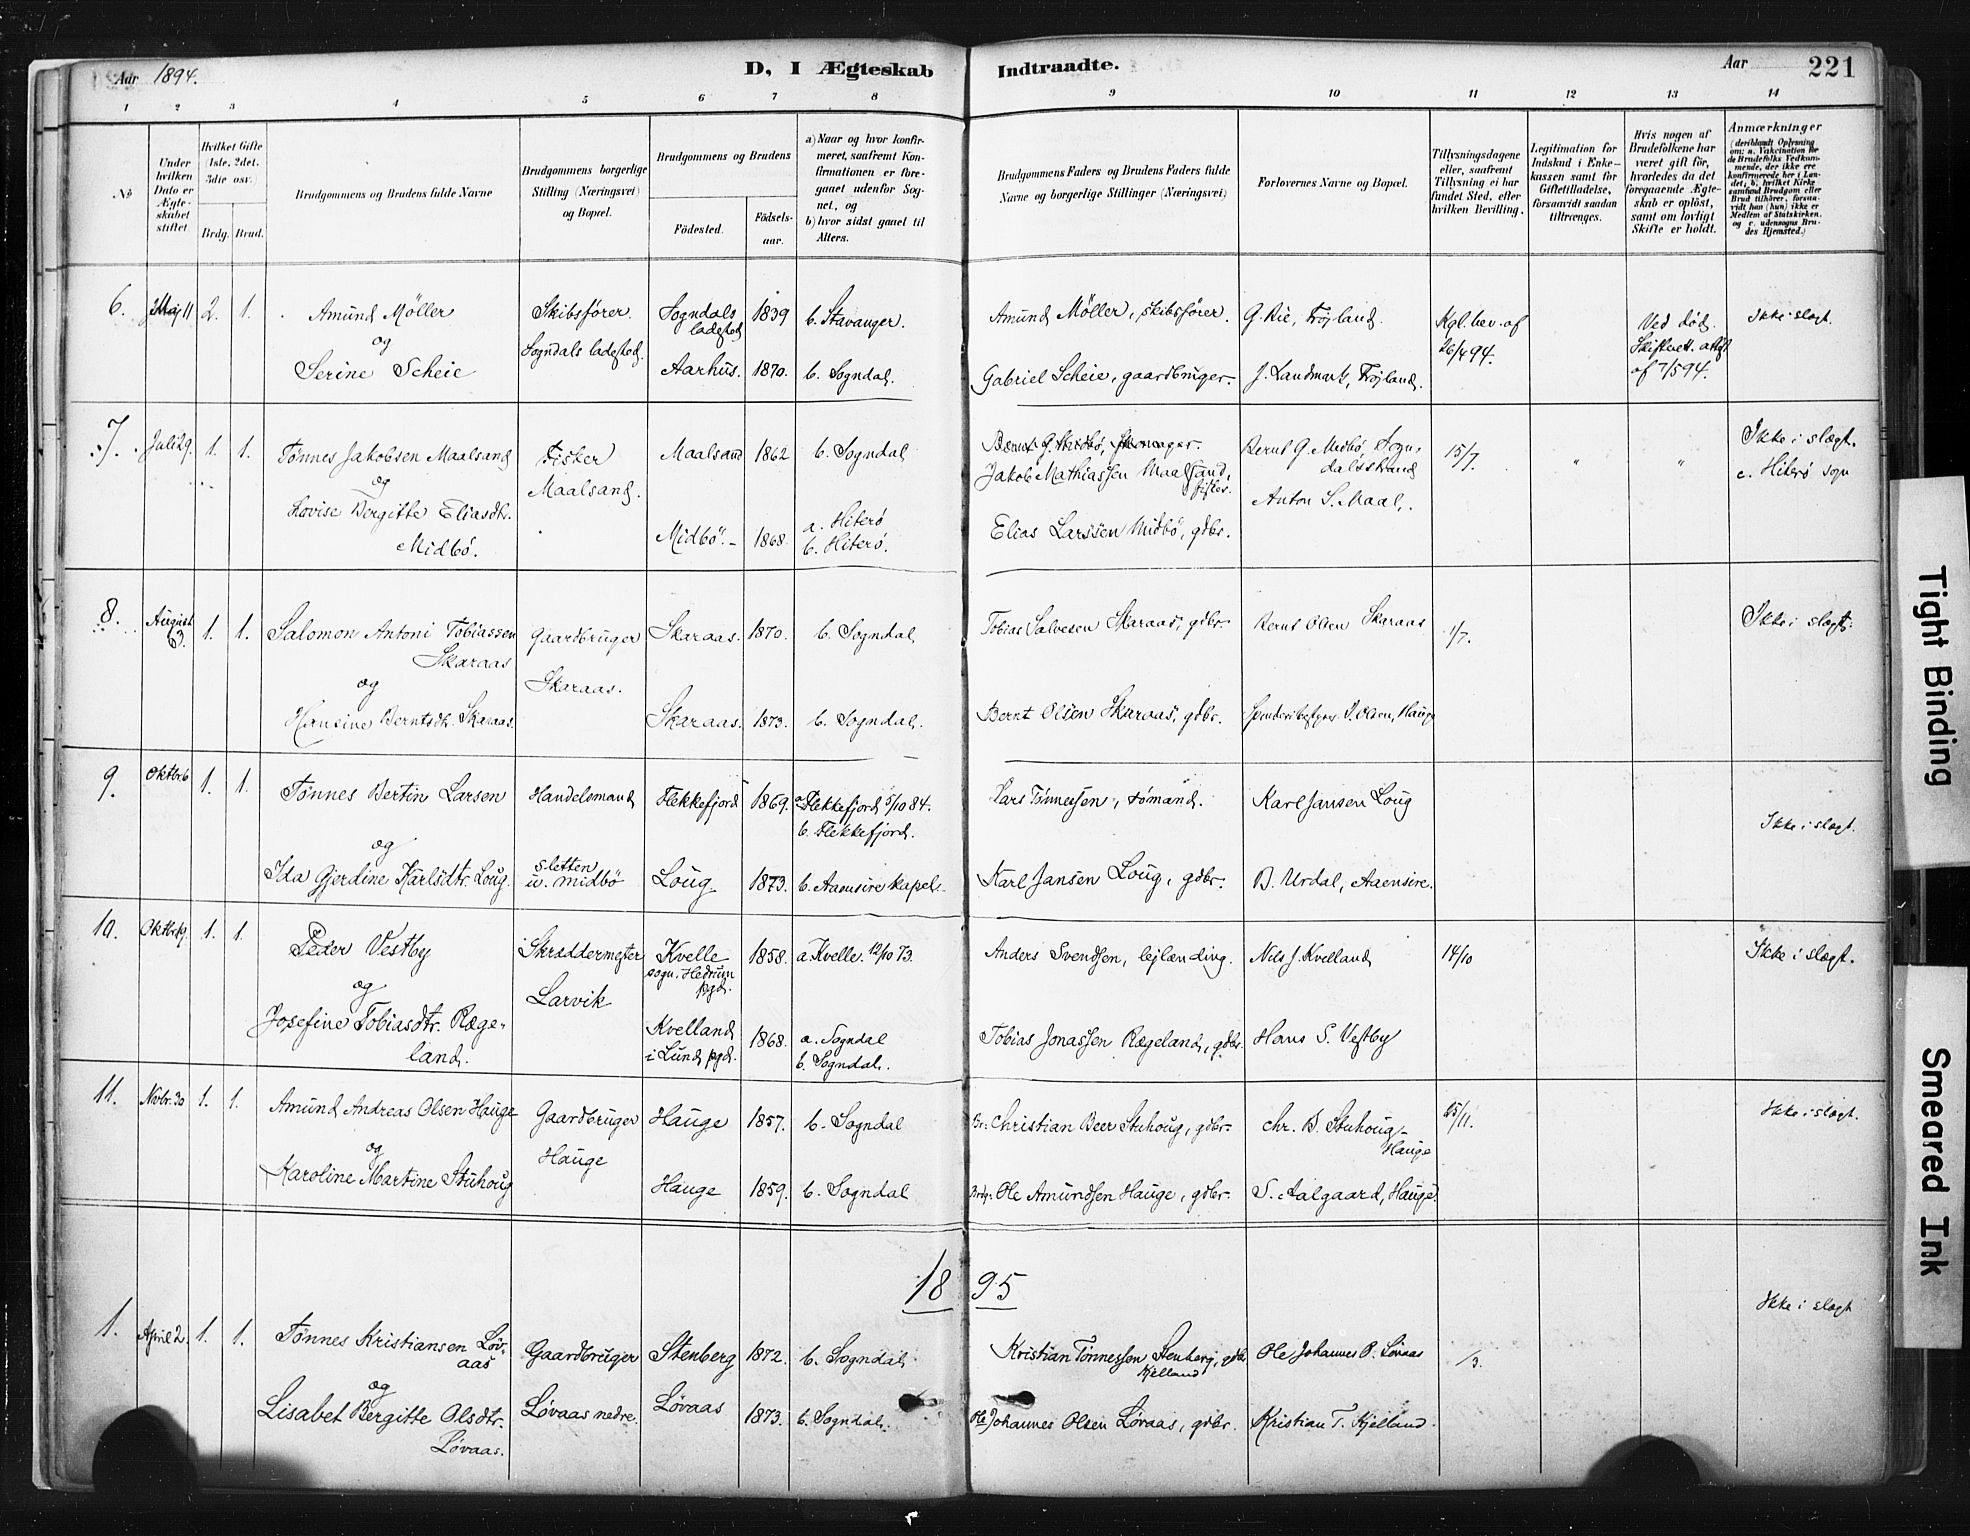 Aar 1894.
D, I Ægteskab Indtraadte.
Aar
221
1 2 3 4 5 6 7 8 9 10 11 12 13 14
№
Under hvilken Dato er Ægteskabet stiftet
Hvilket Gifte (1ste, 2det, 3die osv.)
Brdg. Brud.
Brudgommens og Brudens fulde Navne
Brudgommens borgerlige Stilling (Næringsvei) og Bopæl.
Brudgommens og Brudens
Födested.
Födselsaar.
a) Naar og hvor konfirmeret, saafremt Konfirmationen er foregaaet udenfor Sognet, og
b) hvor sidst gaaet til Alters.
Brudgommens Faders og Brudens Faders fulde Navne og borgerlige Stillinger (Næringsvei)
Forlovernes Navne og Bopæl.
Tillysningsdagene eller, saafremt Tillysning ei har fundet Sted, efter hvilken Bevilling.
Legitimation for Indskud i Enkekassen samt for Giftetilladelse, forsaavidt saadan tiltrænges.
Hvis nogen af Brudefolkene har været gift för, hvorledes da det foregaaende Ægteskab er oplöst, samt om lovligt Skifte er holdt.
Anmærkninger
(deriblandt Oplysning om: a. Vakcination for de Brudefolks Vedkommende, der ikke ere konfirmerede her i Landet, b. hvilket Kirkesamfund Brudgom eller Brud tilhörer, forsaavidt han (hun) ikke er Medlem af Statskirken, og c. udensogns Brudes Hjemsted.)
6. Maj 11 2. 1. Amund Möller Skibsfører. Sogndals ladested 1839 b. Stavanger. Amund Möller, skibsfører. G. Rie, Trøjland. Kgl. bev. af 26/4 94. Ved død. Skifteret. attest af 7/5 94. Ikke i slægt.
og
Serine Scheie Sogndals ladested. Aarhus. 1870. b. Sogndal. Gabriel Scheie, gaardbruger. J. Landmark, Trøjland.
7. Juli 29. 1. 1. Tønnes Jakobsen Maalsand Fisker Maalsand. Maalsand 1862 b. Sogndal Jakob Mathiassen Maalsand, fisker. Bernt G. Midbø, Sogndalsstrand 15/7. " " Ikke i slægt. c. Hiterø sogn
og
Lovise Bergitte Eliasdtr. Midbö. Midbö. 1868. a. Hiterø b. Hiterø. Elias Larssen Midbö, gdbr. Anton S. Maal.
8. August 1. 1. Salomon Antoni Tobiassen Skaraas Gaardbruger Skaraas. Skaraas. 1870. b. Sogndal Tobias Salvesen Skaraas, gdbr. Bernt Olsen Skaraas 1/7. Ikke i slægt.
og
Hansine Berntsdtr. Skaraas Skaraas. 1873. b. Sogndal. Bernt Olsen Skaraas, gdbr. Olsen, Hauge
9. Oktbr. 6 1. 1. Tønnes Bertin Larsen Handelsmand Flekkefjord 1869. a. Flekkefjord 5/10 84. b. Flekkefjord. Lars Tønnessen, sømand. Karl Jansen Loug Ikke i slægt.
og
Ida Gjerdine Karlsdtr. Loug. Sletten u. Midbö Loug 1873. b. Aaensire kapel. Karl Jansen Loug, gdbr. B. Urdal, Aaensire.
10. Oktbr. 19. 1. 1. Peder Vestby Skræddermester Larvik Kvelle sogn. Hedrum pgd. 1858. a. Kvelle. 12/10 73. Anders Svendsen, lejlænding. Nils J. Kvelland 14/10 Ikke i slægt.
og
Josefine Tobiasdtr. Rægeland. Kvelland i Lund pgd. 1868. a. Sogndal b. Sogndal. Tobias Jonassen Rægeland, gdbr. Hans S. Vestby
11. Novbr. 30 1. 1. Amund Andreas Olsen Hauge Gaardbruger Hauge Hauge 1857. b. Sogndal Br: Christian Beer Stuhoug, gdbr. Chr. B. Stuhoug, Hauge 25/11. Ikke i slægt.
og
Karoline Martine Stuhoug Hauge 1859. b. Sogndal Brdg: Ole Amundsen Hauge, gdbr. S. Aalgaard, Hauge
1895
1. April 2. 1. 1. Tønnes Kristiansen Løvaas Gaardbruger Stenberg 1872. b. Sogndal. Kristian Tønnessen Stenberg, gdbr. Kjelland Ole Johannes O. Løvaas /3. Ikke i slægt
og
Lisabet Bergitte Olsdtr. Løvaas. Løvaas nedre. Løvaas 1873. b. Sogndal. Ole Johannes Olsen Løvaas, gdbr. Kristian T. Kjelland.
Tight Binding
Smeared Ink